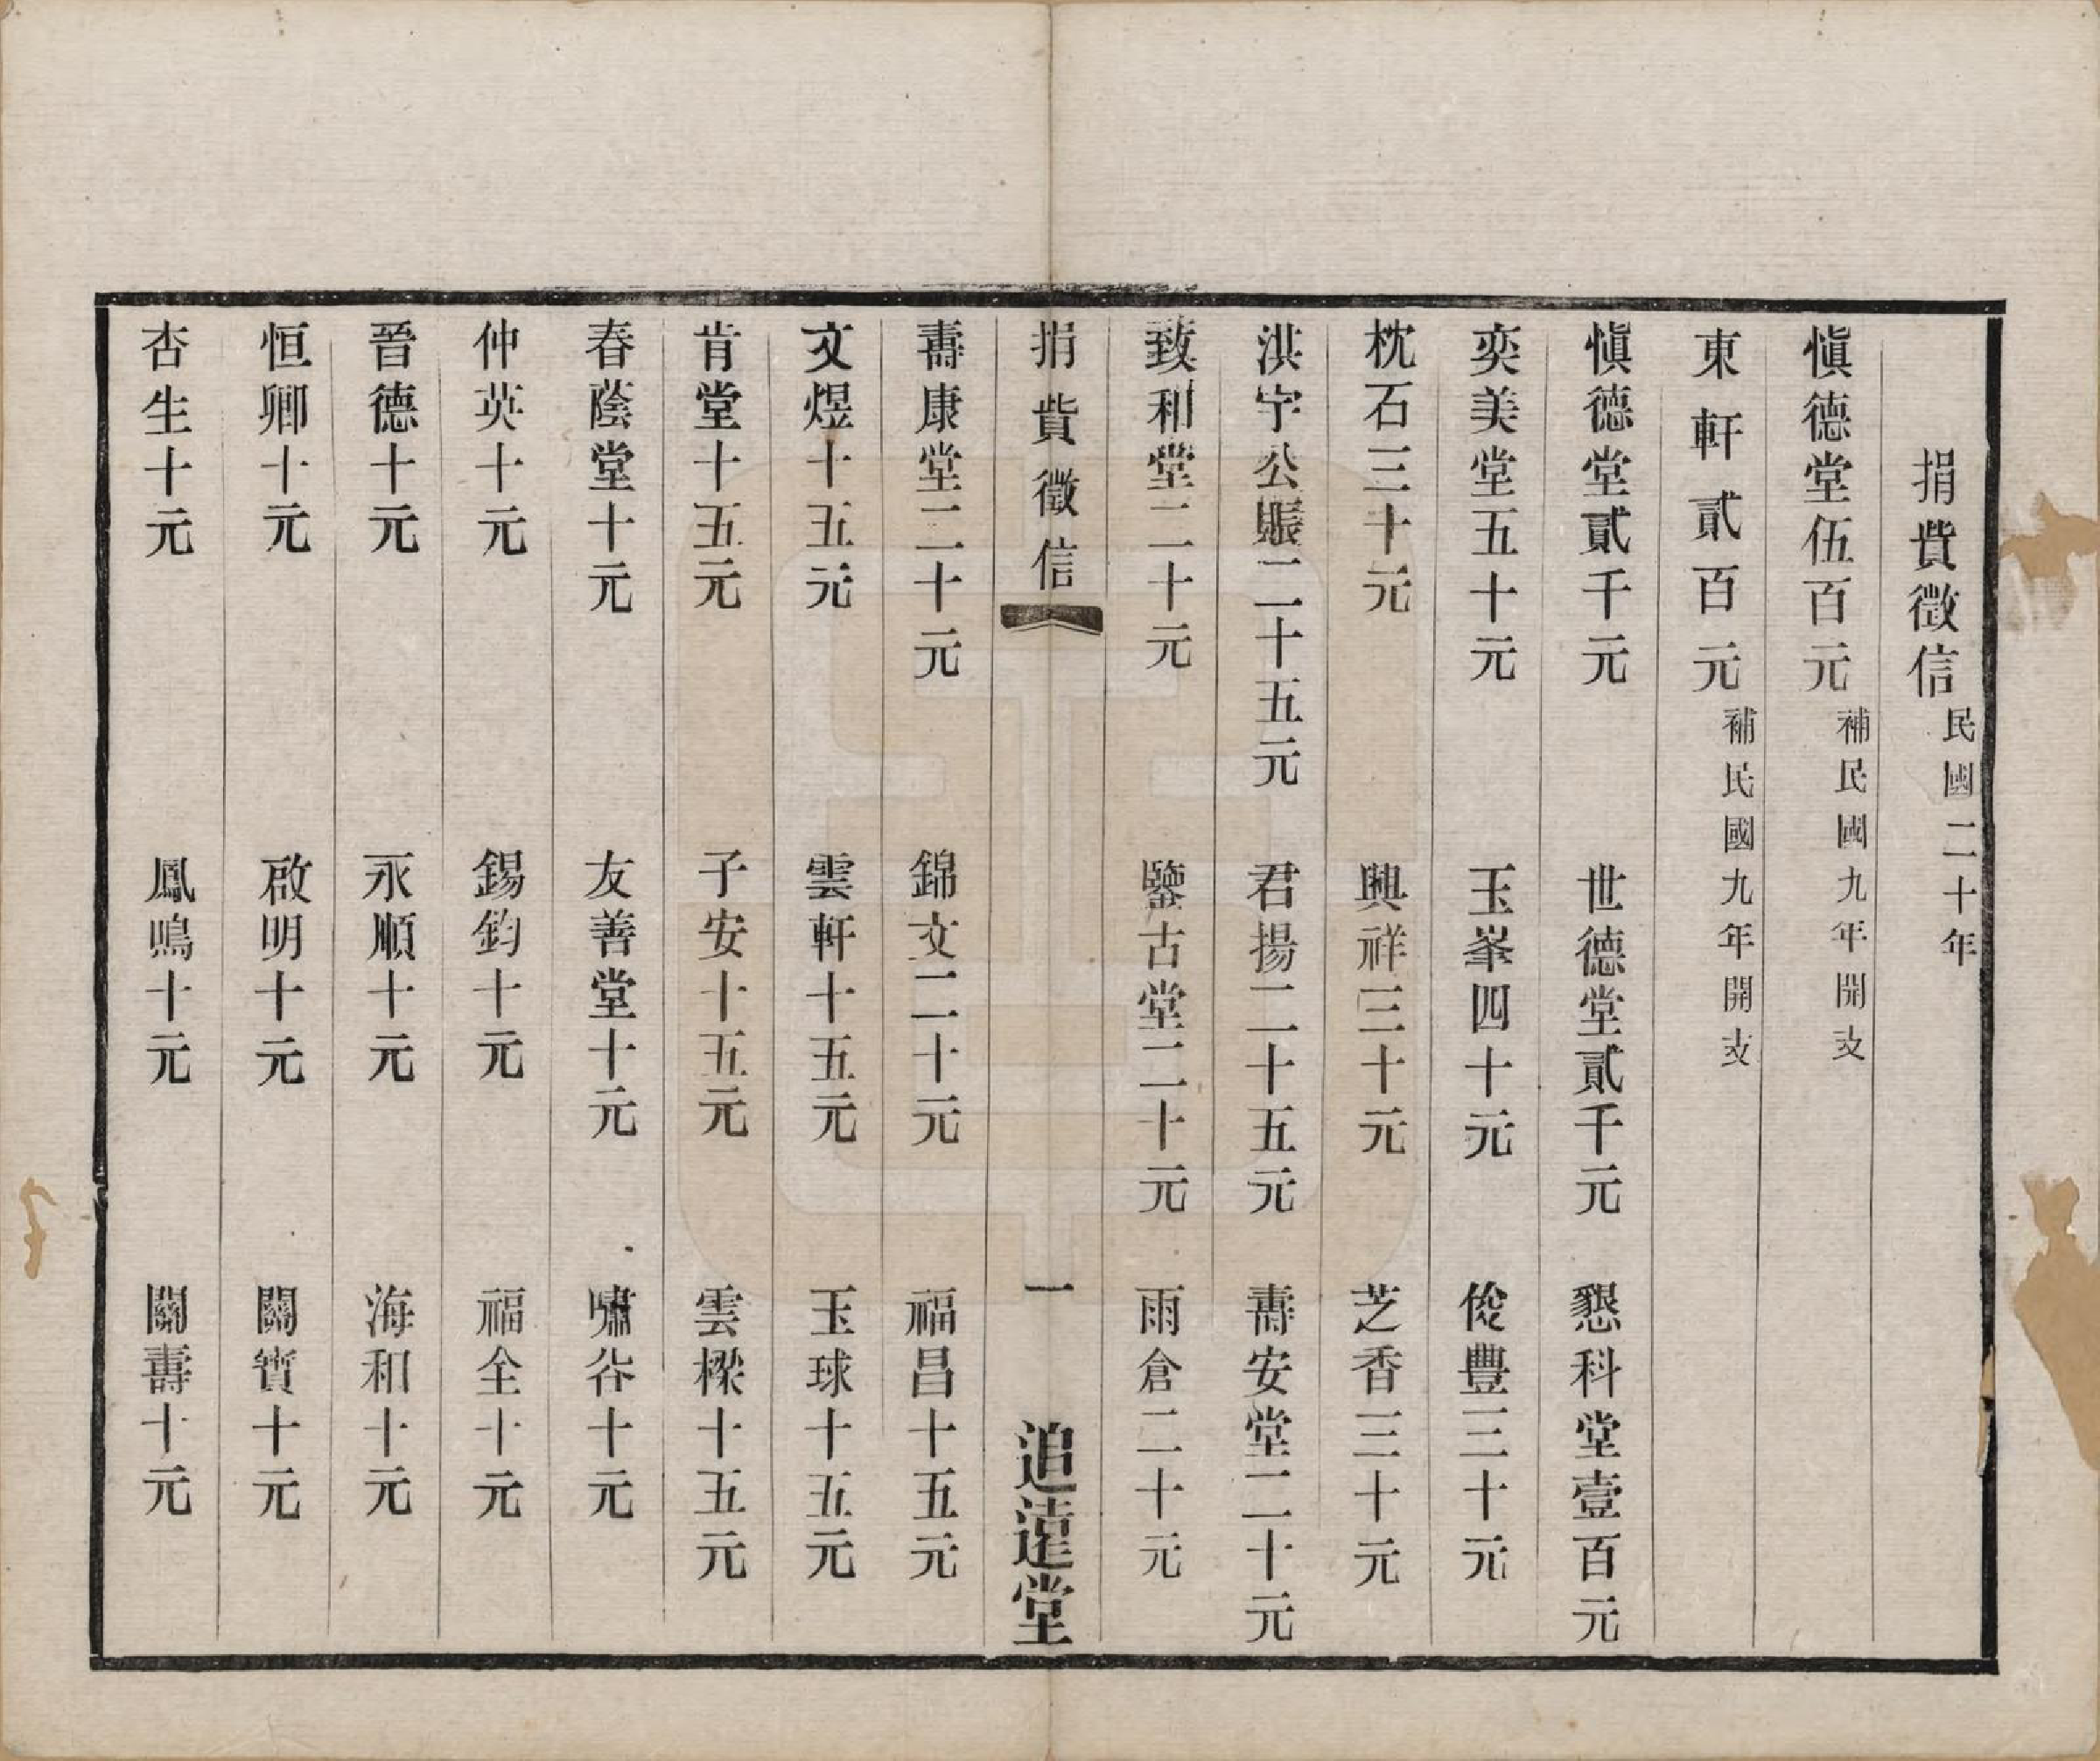 捐費徵信民國二十年
愼德堂伍百元補民國九年開支
東軒貳百元補民國九年開支
愼德堂貳千元　世德堂貳千元　懇科堂壹百元
奕美堂五十元　玉峯四十元　俊豐三十元
枕石三十元　興祥三十元　芝香三十元
淇宇公賬二十五元　君揚二十五元　壽安堂二十元
致和堂二十元　鑒古堂二十元　雨倉二十元
捐貲徵信　一　追遠堂
壽康堂二十元　錦文二十元　福昌十五元
文煜十五元　雲軒十五元　玉球十五元
肯堂十五元　子安十五元　雲樑十五元
春蔭堂十元　友善堂十元　嘯谷十元
仲英十元　錫鈞十元　福全十元
晉德十元　永順十元　海和十元
恒卿十元　啟明十元　關賓十元
杏生十元　鳳鳴十元　關壽十元